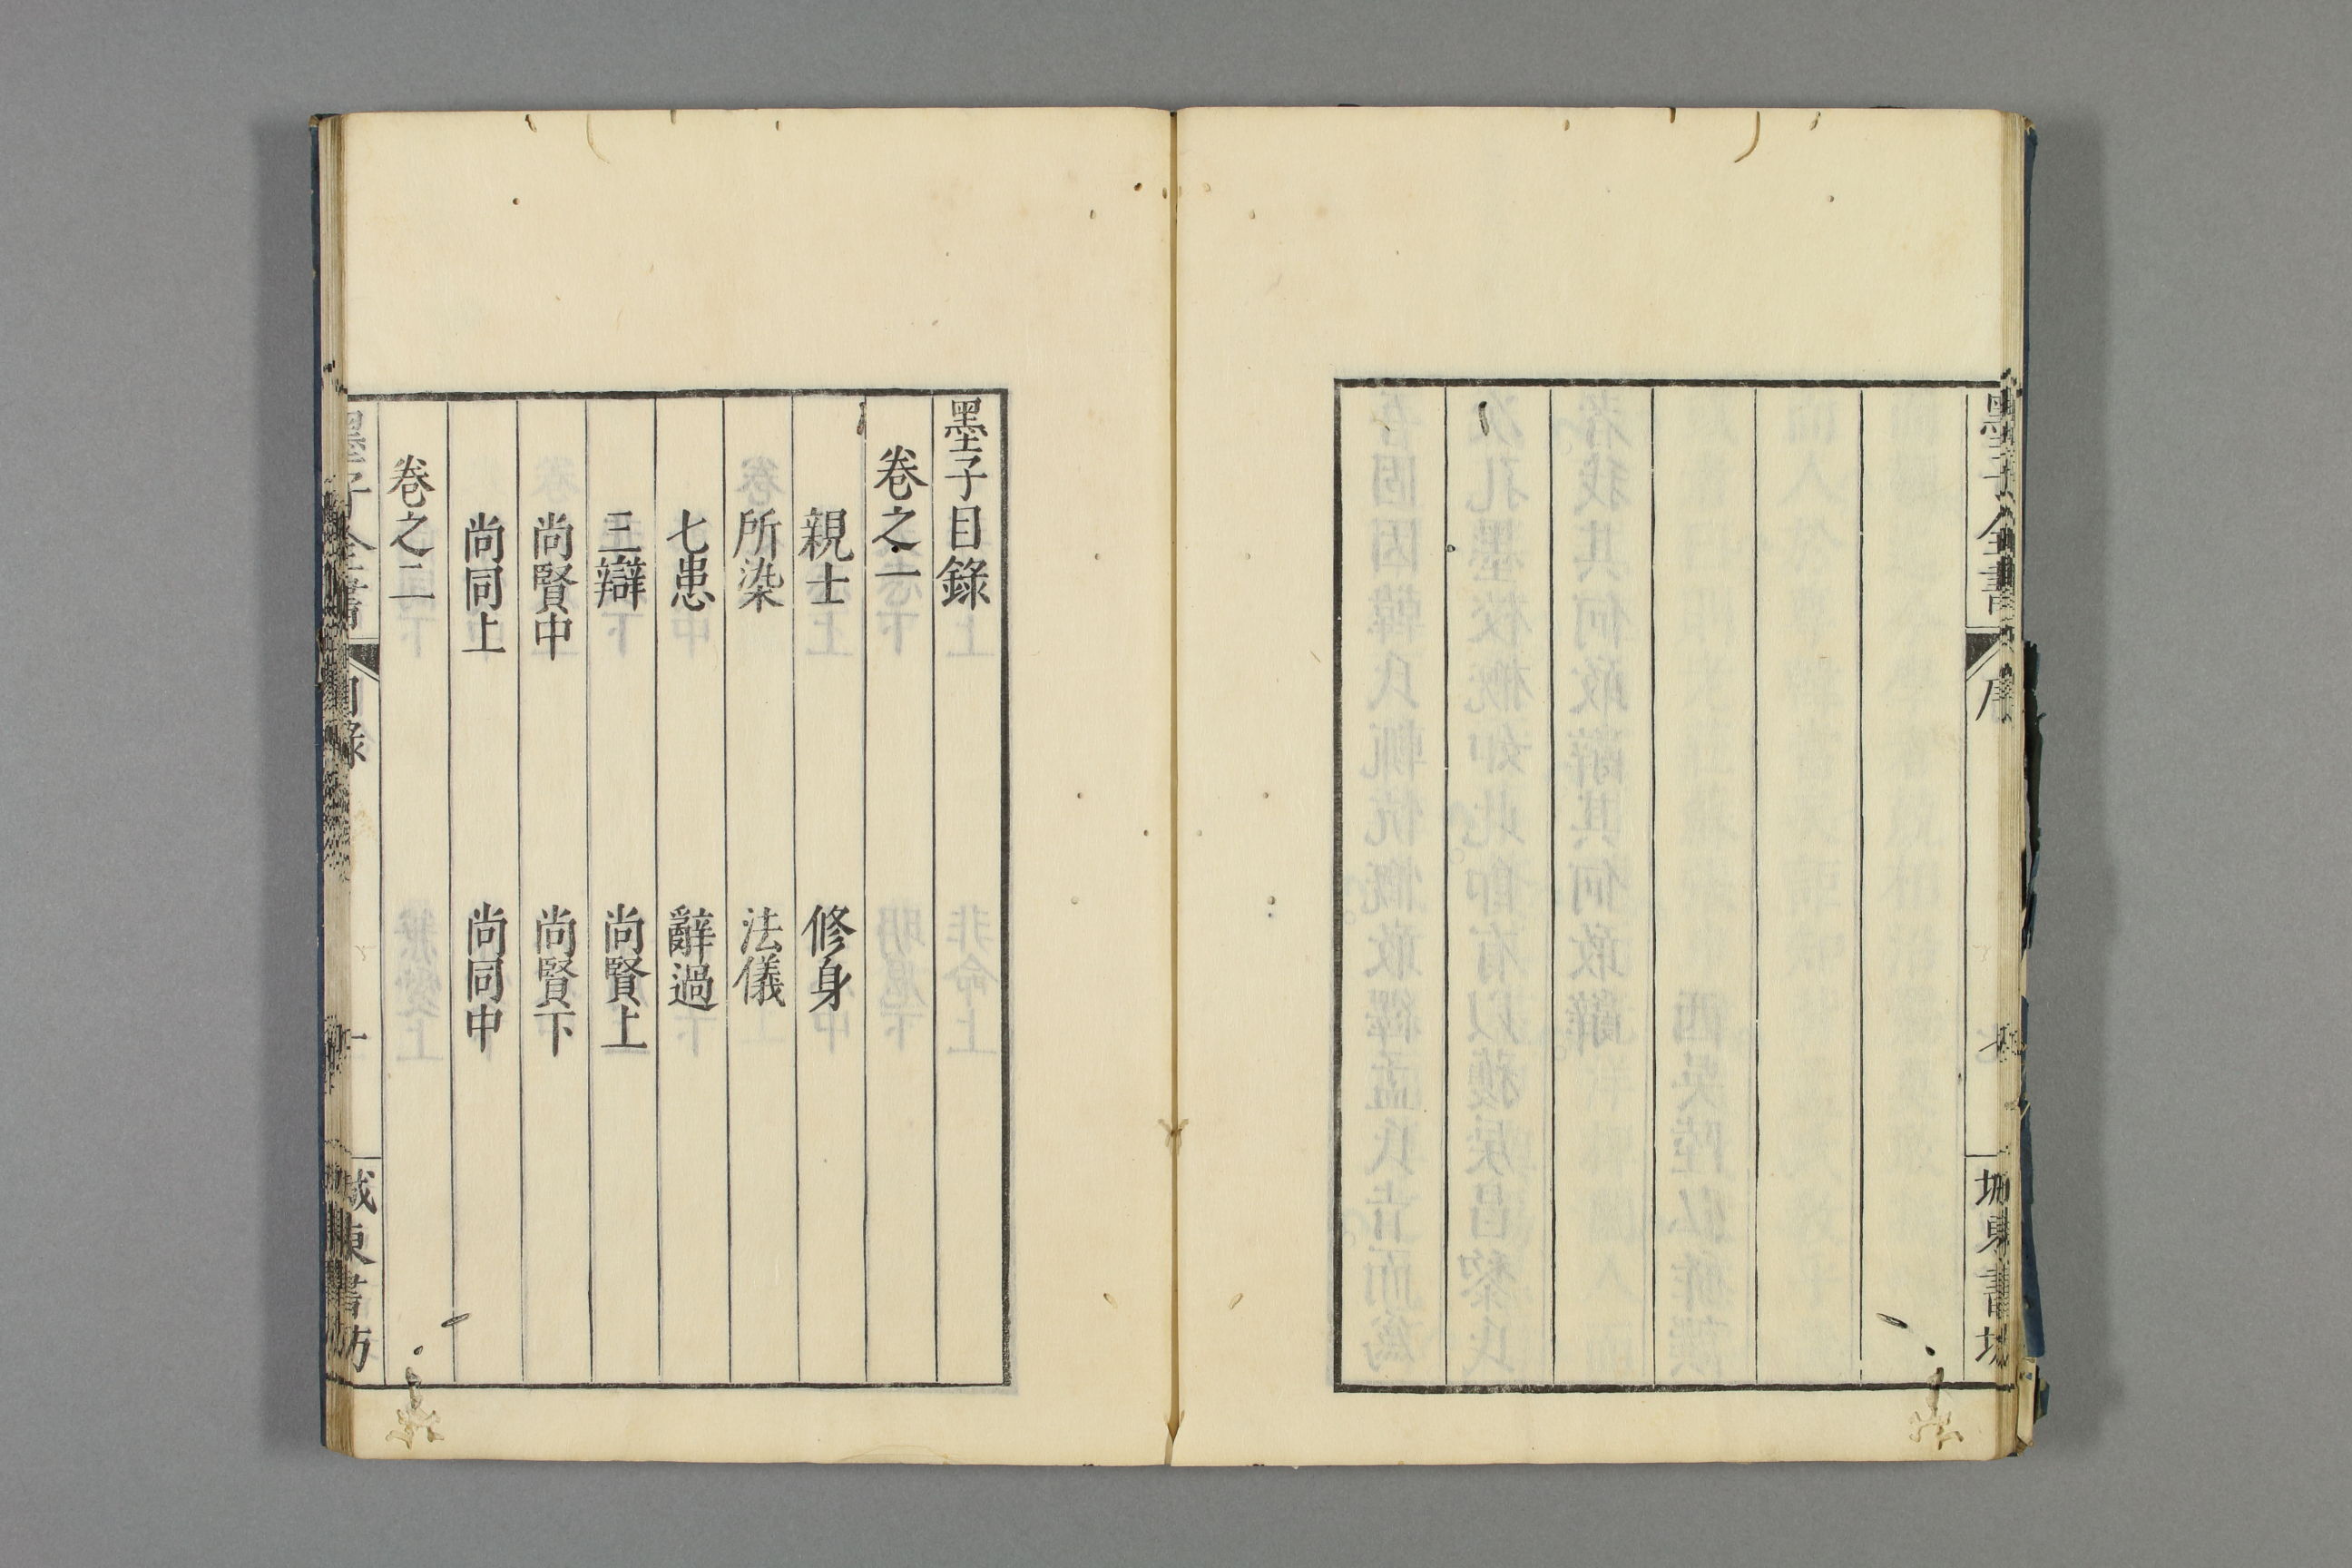 墨子全書
序
七
城東書坊
墨子目錄
卷之一
親士 修身
所染 法儀
七患 辭過
三辯 尚賢上
尚賢中 尚賢下
尚同上 尚同中
卷之二
墨子全書
目錄
一
城東書坊